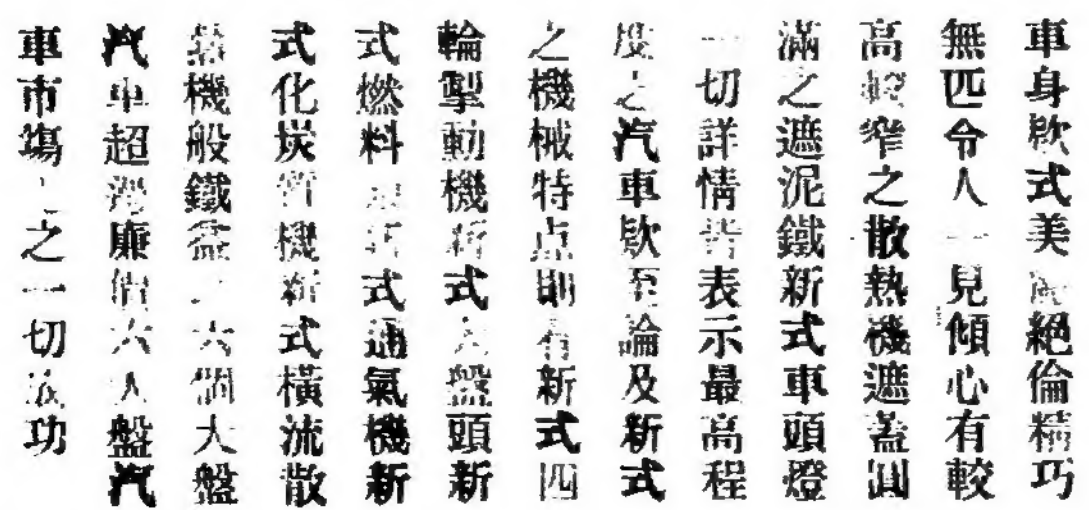 車身欵式美絕倫精巧
無匹令人一見傾心有較
高較窄之散熱機遮蓋圓
滿之遮泥鐵新式車頭燈
一切詳情皆表示最高程
度之汽車欵至論及新式
之機械特点則有新式四
輪掣動機新式大盤頭新
式燃料新式通氣機新
式化炭質機新式橫流散
熱機般鐵六個大盤
汽車超廉價六人盤汽
車市塲上之一切成功